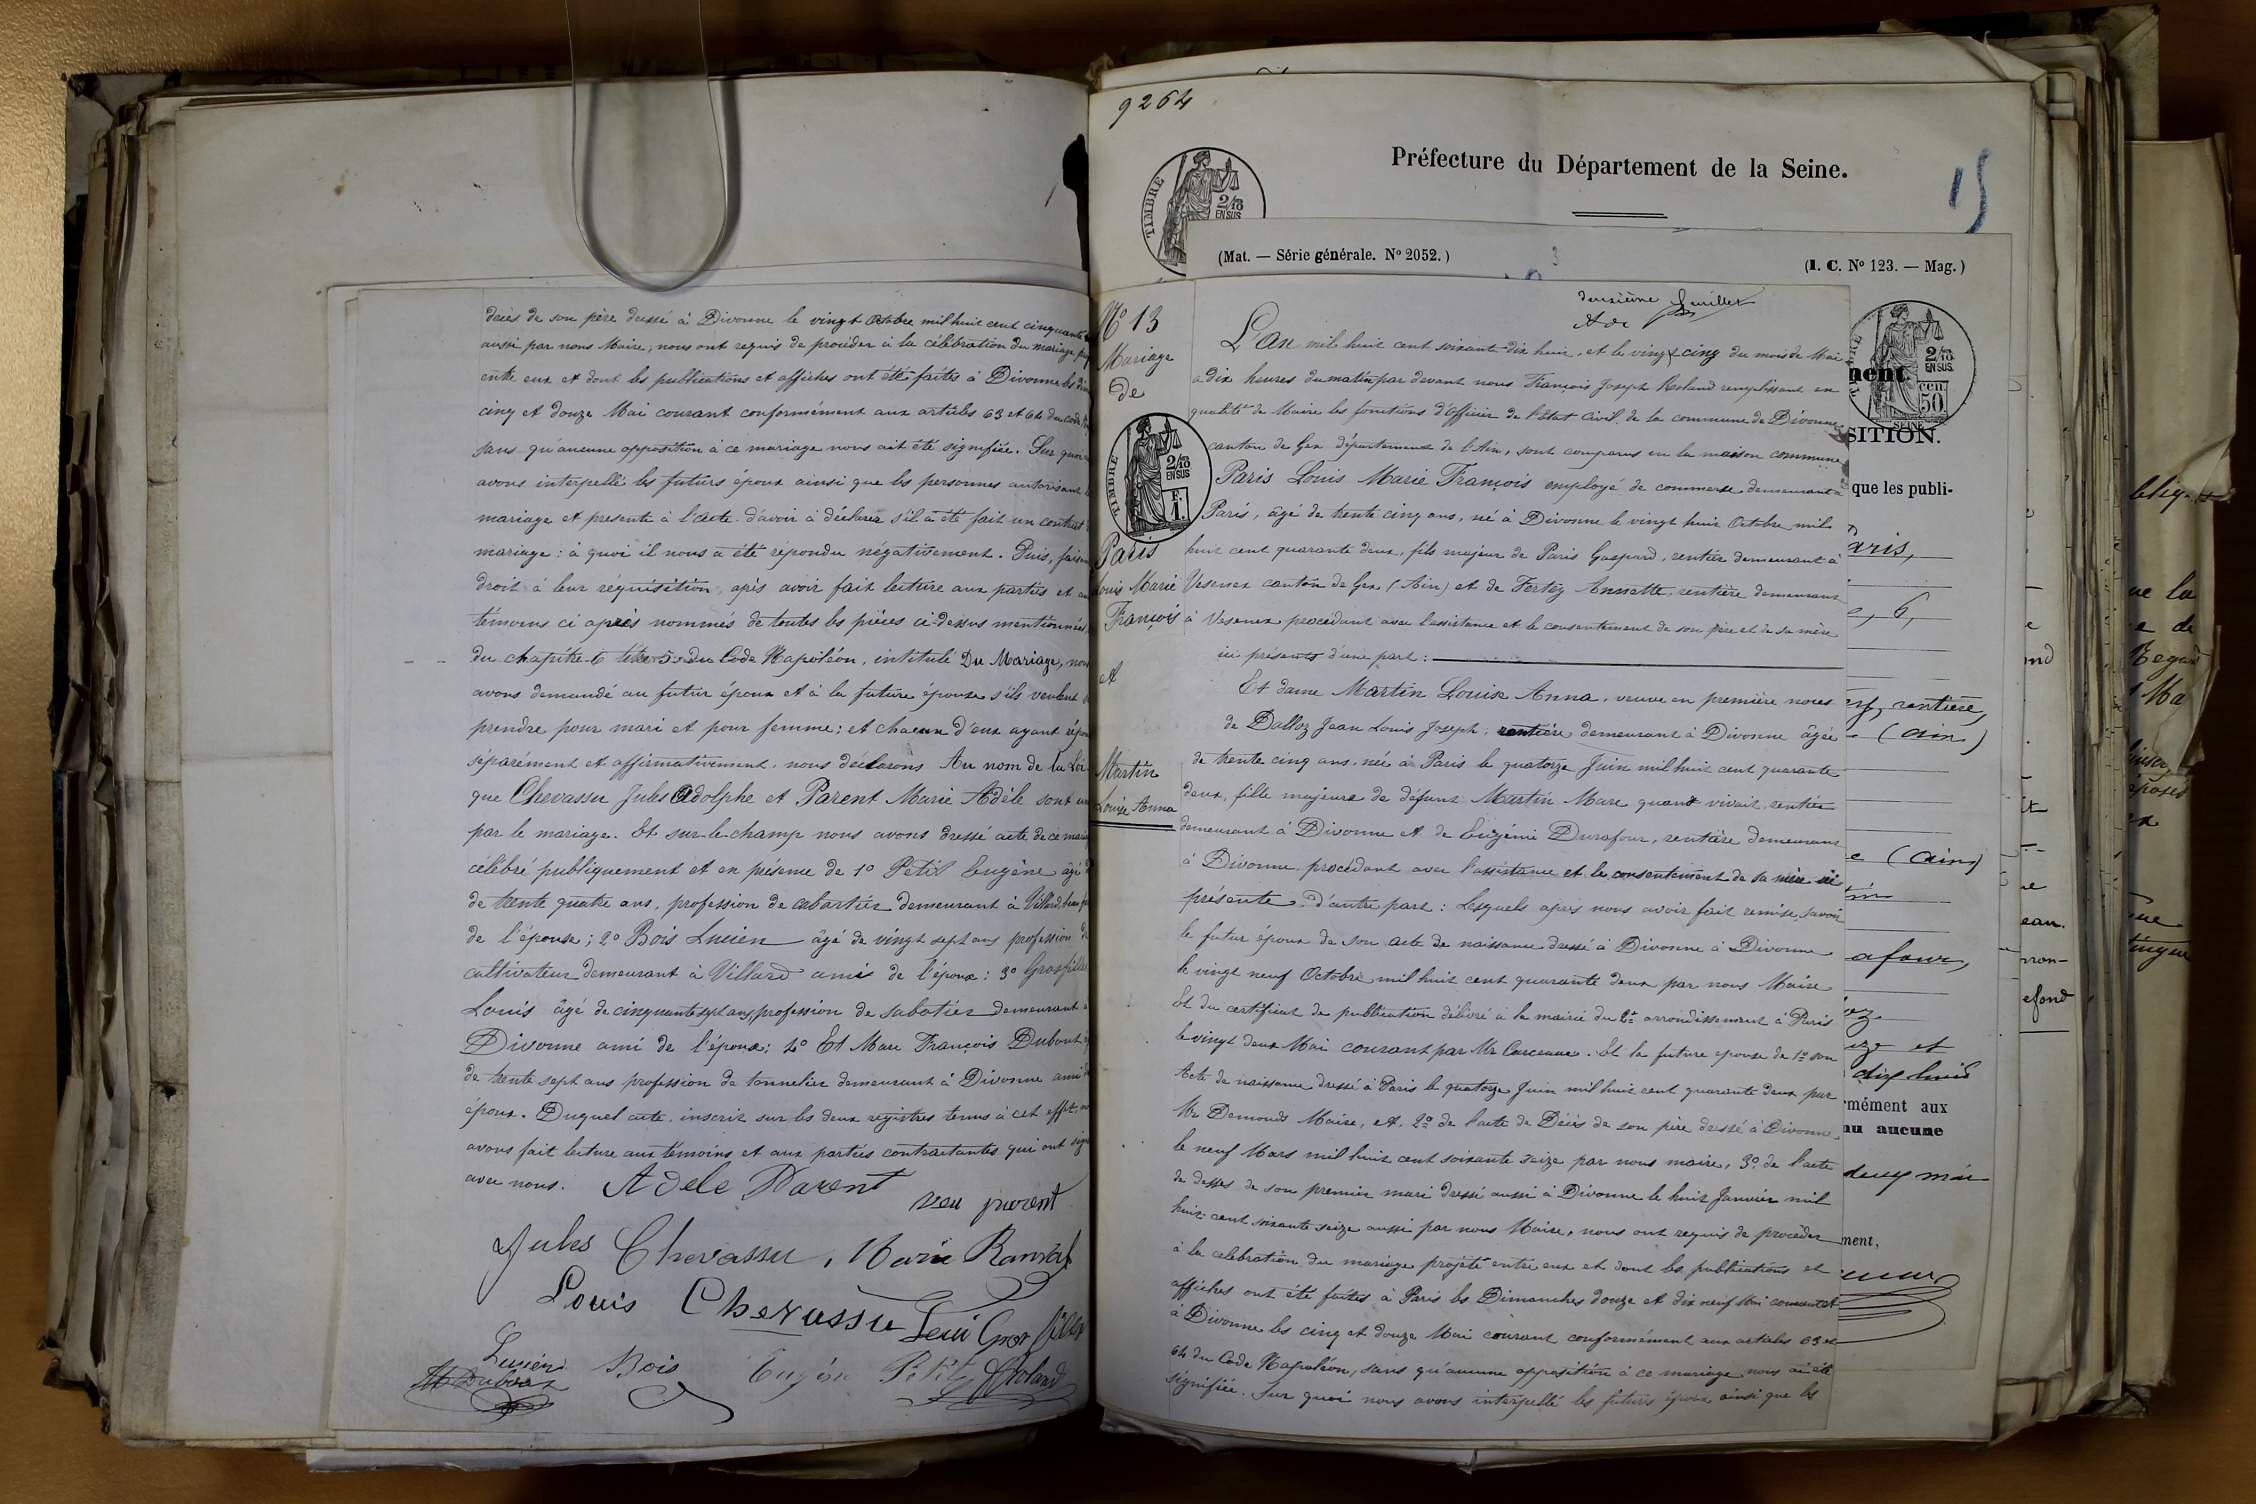 décès de son père dressé à Divonne le vingt Octobre mil huit cent cinquante
aussi par nous Maire, nous ont requis de procéder à la célébration du mariage
entre eux et dont les publications et affiches ont été faites à Divonne les
cinq et douze Mai courant conformément aux articles 63 et 64 du code
sans qu'aucune opposition à ce mariage nous ait été signifiée. Sur quoi
avons interpellé les futurs époux ainsi que les personnes autorisant
mariage et présente à l'acte d'avoir à déclarer s'il a été fait un contrat
mariage : à quoi il nous a été répondu négativement. Puis, faisant
droit à leur réquisition, après avoir fait lecture aux parties et
témoins ci après nommés de toutes les pièces ci-dessus mentionnées,
du chapitre 6 titre 5 du Code Napoléon, intitulé Du Mariage, nous
avons demandé au futur époux et à la future épouse s'ils veulent
prendre pour mari et pour femme ; et chacun d'eux ayant
séparément et affirmativement, nous déclarons Au nom de la Loi
que Chevassu Jules Adolphe et Parent Marie Adèle sont
par le mariage. Et sur-le-champ nous avons dressé acte de ce
célébré publiquement et en présence de 1º Petit Eugène âgé
de trente quatre ans, profession de cabartier demeurant à Villard
de l'épouse ; 2º Bois Lucien âgé de vingt sept ans profession
cultivateur demeurant à Villard amis de l'époux : 3º Grosfillex
Louis âgé de cinquante sept ans, profession de sabotier demeurant
Divonne ami de l'époux ; 4º Et Marc François Dubout
de trente sept ans profession de tonnelier demeurant à Divonne ami
époux. Duquel acte, inscrit sur les deux registres tenus à cet effet,
avons fait lecture aux témoins et aux parties contractantes qui ont signé
avec nous. Adele Parent
veu parent
Jules Chevassu, Marie
Louis Chevassu
Lucien Bois Eugène Petit Roland
9264
Préfecture du Département de la Seine.
15
TIMBRE
2/10
EN SUS
(Mat. — Série générale. Nº 2052.)
(I. C. Nº 123. — Mag.)
deuxième feuillet
Nº 13
Mariage
de
TIMBRE
2/10
EN SUS
F.
1.
Paris
Louis Marie
François
et
Martin
Louise Anna
L'an mil huit cent soixante dix huit, et le vingt cinq du mois de Mai
à dix heures du matin par devant nous François Joseph Roland remplissant en
qualité de Maire les fonctions d'Officier de l'État Civil de la commune de Divonne
canton de Gex département de l'Ain, sont comparus en la maison commune
Paris Louis Marie François employé de commerce demeurant à
Paris, âgé de trente cinq ans, né à Divonne le vingt huit Octobre mil
huit cent quarante deux, fils majeur de Paris Gaspard, rentier demeurant à
Vesenex canton de Gex (Ain) et de Annette, rentière demeurant
à Vesenex procédant avec l'assistance et le consentement de son père et de sa mère
ici présents d'une part :
Et dame Martin Louise Anna, veuve en première noces
de Dalloz Jean Louis Joseph, rentière demeurant à Divonne âgée
de trente cinq ans, née à Paris le quatorze Juin mil huit cent quarante
deux, fille majeure de défunt Martin Marc quand vivait rentier
demeurant à Divonne et de Eugénie Durafour, rentière demeurant
à Divonne procédant avec l'assistance et le consentement de sa mère ici
présente d'autre part : Lesquels après nous avoir fait remise, savoir
le futur époux de son acte de naissance dressé à Divonne à Divonne
le vingt neuf Octobre mil huit cent quarante deux par nous Maire
Et du certificat de publication délivré à la mairie du arrondissement à Paris
le vingt deux Mai courant par Mr. Et la future épouse de 1º son
Acte de naissance dressé à Paris le quatorze Juin mil huit cent quarante deux par
Mr Demonds Maire, et 2º de l'acte de Décès de son père dressé à Divonne
le neuf Mars mil huit cent soixante seize par nous maire, 3º de l'acte
de de son premier mari dressé aussi à Divonne le huit Janvier mil
huit cent soixante seize aussi par nous Maire, nous ont requis de procéder
à la célébration du mariage projeté entre eux et dont les publications et
affiches ont été faites à Paris les Dimanches douze et dix neuf Mai courant et
à Divonne les cinq et douze Mai courant conformément aux articles 63 et
64 du Code Napoléon, sans qu'aucune opposition à ce mariage nous ai été
signifiée. Sur quoi nous avons interpellé les futurs époux ainsi que les
2/10
EN SUS.
cen.
50.
SEINE
ment
SITION.
que les publi-
Paris,
6,
rentière,
(ain)
(Ain)
afour,
et
dix huit
mément aux
nu aucune
deux mai
ment,